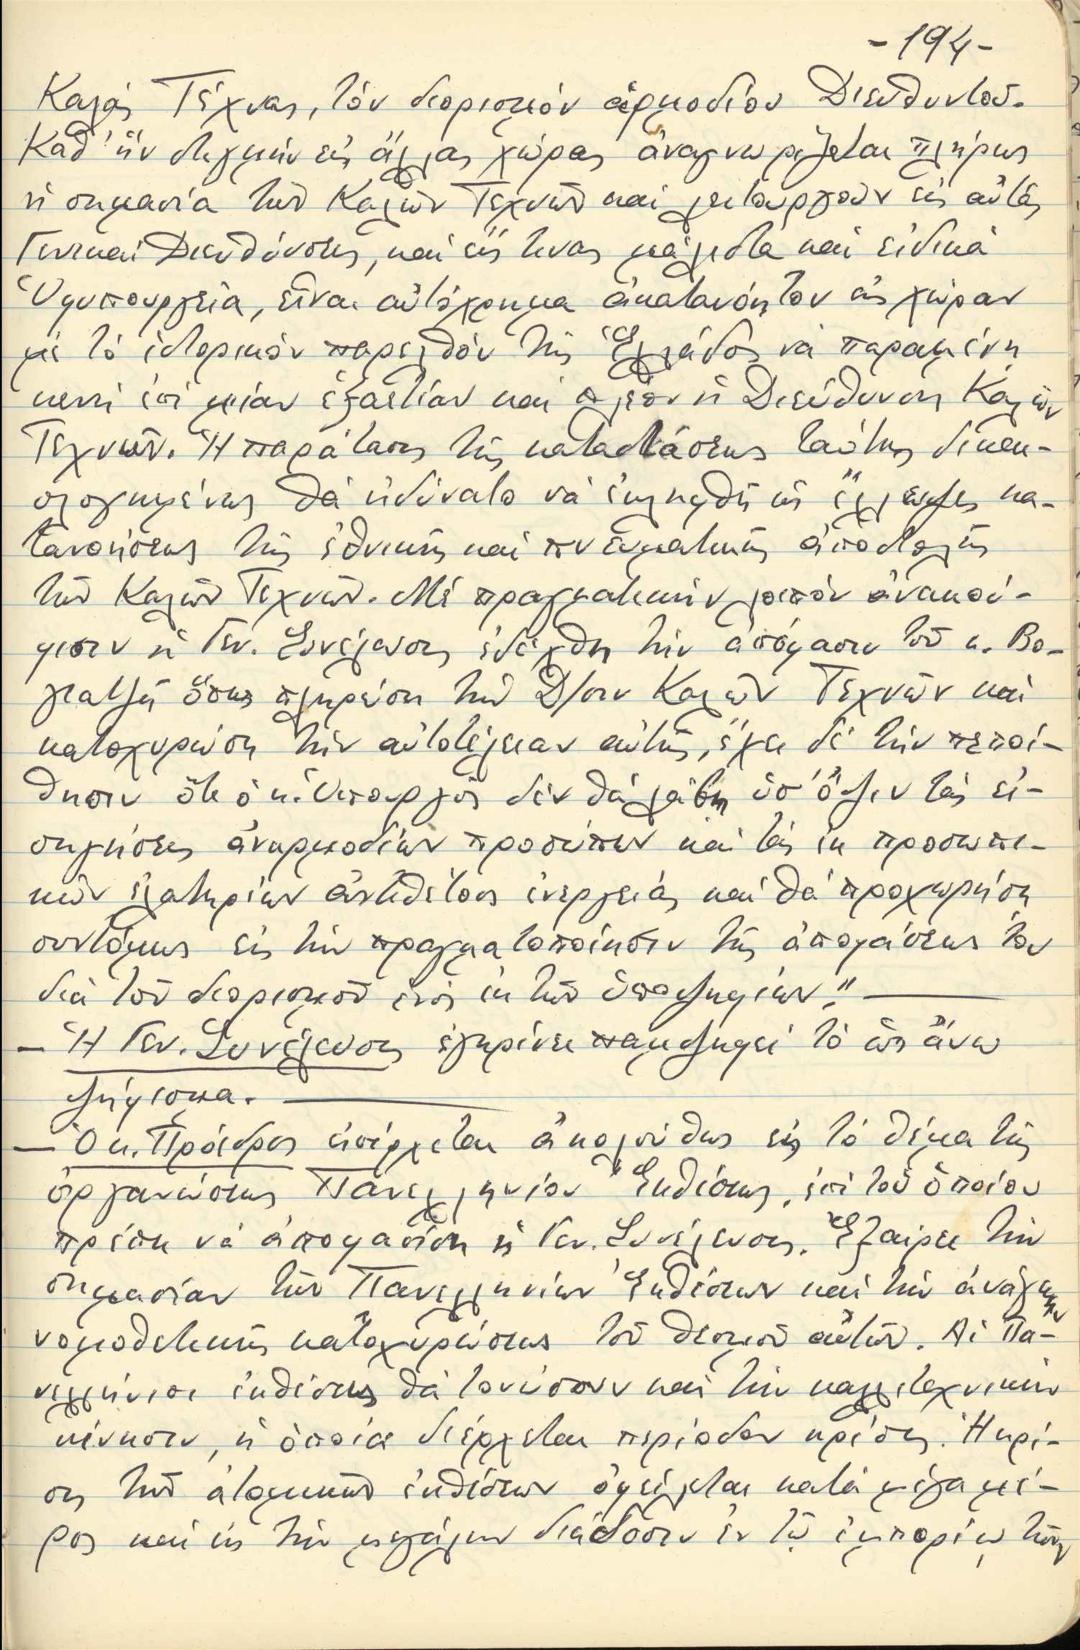 -194-
Καλάς Τέχνας, τόν διορισμόν ἁρμοδίου Διευθυντοῦ.
Καθ' ἥν στιγμήν εἰς ἄλλας χώρας ἀναγνωρίζεται πλήρως
ἡ σημασία τῶν Καλῶν Τεχνῶν καί λειτουργοῦν εἰς αὐτάς
Γενικαί Διευθύνσεις, καί εἴς τινας μάλιστα καί εἰδικά
Ὑφυπουργεῖα, εἶναι αὐτόχρημα ἀκατανόητον εἰς χώραν
μέ τό ἱστορικόν παρελθόν τῆς Ἑλλάδος νά παραμένῃ
κενή ἐπί μίαν ἑξαετίαν καί πλέον ἡ Διεύθυνσις Καλῶν
Τεχνῶν. Ἡ παράτασις τῆς καταστάσεως ταύτης δικαι-
ολογημένως θά ἠδύνατο νά ἐκληφθῇ ὡς ἔλλειψις κα-
τανοήσεως τῆς ἐθνικῆς καί πνευματικῆς ἀποστολῆς
τῶν Καλῶν Τεχνῶν. Μέ πραγματικήν λοιπόν ἀνακού-
φισιν ἡ Γεν. Συνέλευσις ἐδέχθη τήν ἀπόφασιν τοῦ κ. Βο-
γιατζῆ ὅπως πληρώσῃ τήν Δ/σιν Καλῶν Τεχνῶν καί
κατοχυρώσῃ τήν αὐτοτέλειαν αὐτῆς, ἔχει δέ τήν πεποί-
θησιν ὅτι ὁ κ. Ὑπουργός δέν θά λάβῃ ὑπ' ὄψιν τάς εἰ-
σηγήσεις ἀναρμοδίων προσώπων καί τάς ἐκ προσωπι-
κῶν ἐλατηρίων ἀντιθέτους ἐνεργείας καί θά προχωρήσῃ
συντόμως εἰς τήν πραγματοποίησιν τῆς ἀποφάσεώς του
διά τοῦ διορισμοῦ ἑνός ἐκ τῶν ὑποψηφίων."
- Ἡ Γεν. Συνέλευσις ἐγκρίνει παμψηφεί τό ὡς ἄνω
ψήφισμα.
- Ὁ κ. Πρόεδρος ἐπέρχεται ἀκολούθως εἰς τό θέμα τῆς
ὀργανώσεως Πανελληνίου Ἐκθέσεως, ἐπί τοῦ ὁποίου
πρέπει νά ἀποφασίσῃ ἡ Γεν. Συνέλευσις. Ἐξαίρει τήν
σημασίαν τῶν Πανελληνίων Ἐκθέσεων καί τήν ἀνάγκην
νομοθετικῆς κατοχυρώσεως τοῦ θεσμοῦ αὐτῶν. Αἱ Πα-
νελλήνιοι ἐκθέσεις θά τονώσουν καί τήν καλλιτεχνικήν
κίνησιν, ἡ ὁποία διέρχεται περίοδον κρίσης. Ἡ κρί-
σις τῶν ἀτομικῶν ἐκθέσεων ὀφείλεται κατά μέγα μέ-
ρος καί εἰς τήν μεγάλην διάδοσιν ἐν τῷ ἐμπορίῳ τῆς